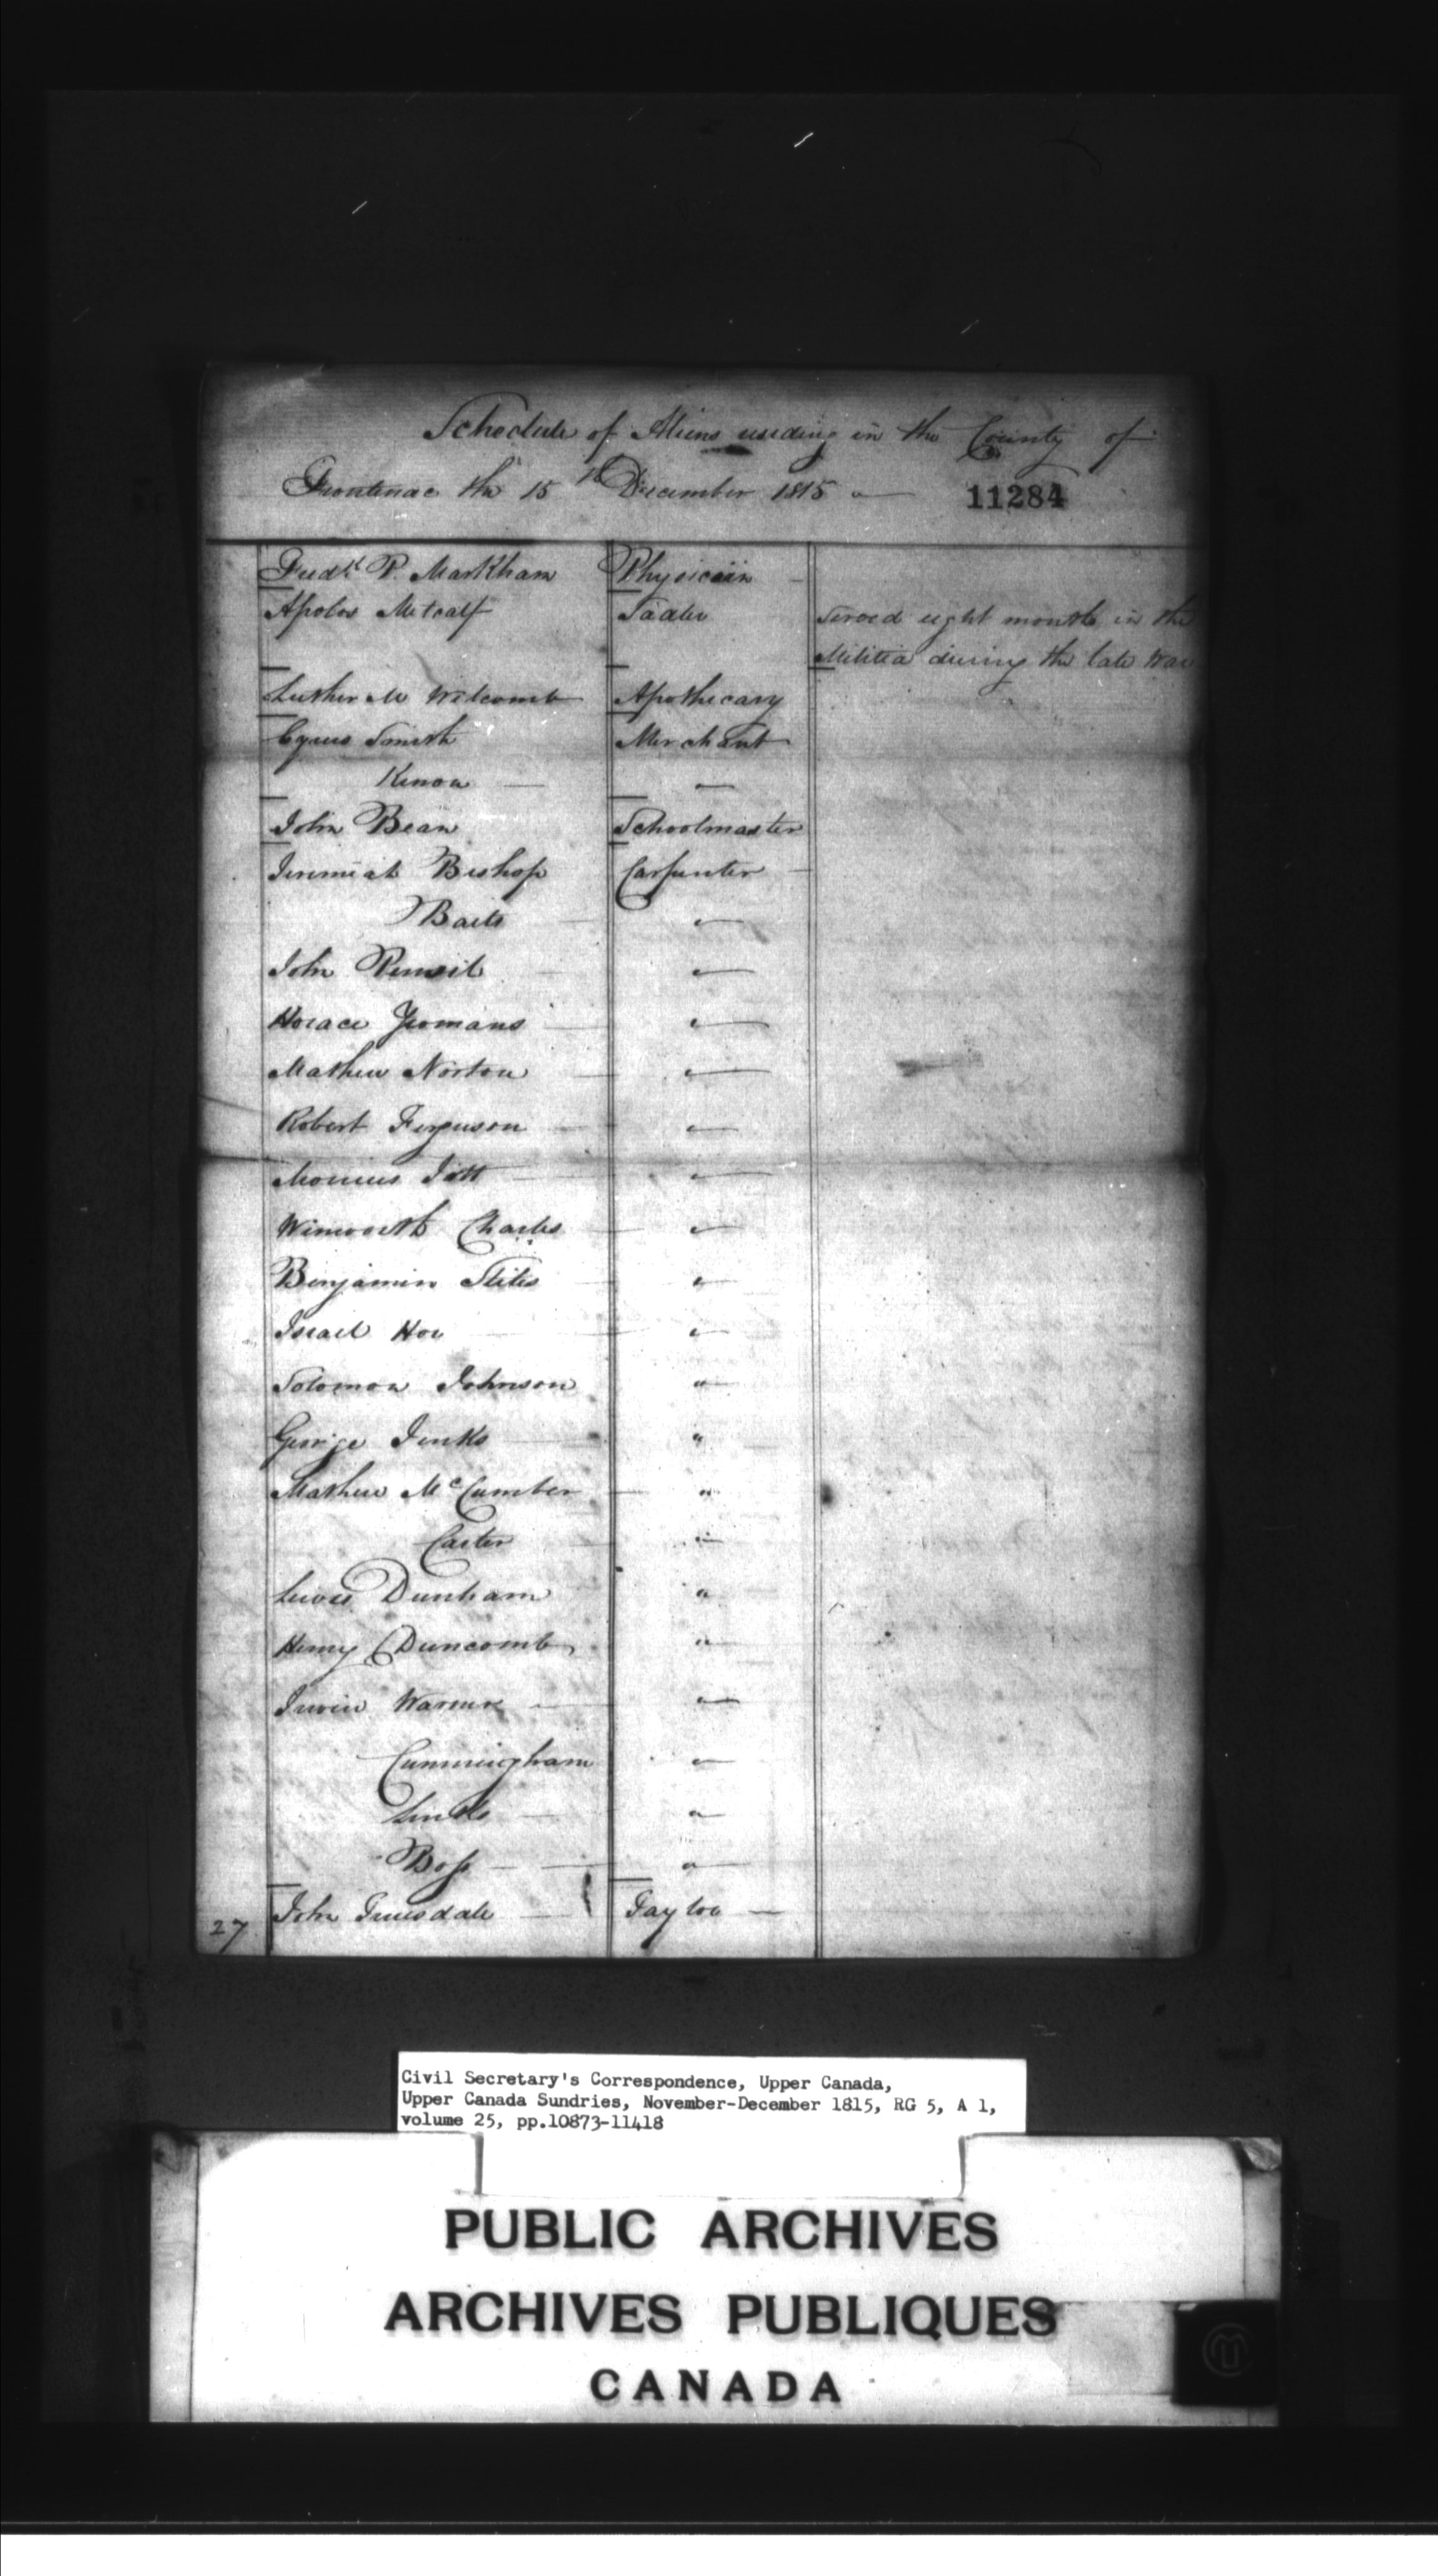 Schedule of Aliens residing in the County of
Frontenac the 15th December 1815
11284
Fredk P. Markham Physician
Apolos Metcalf Sadler Served eight months in the
Militia during the late War
Luther M Welcomb Apothecary
Cyrus Smith Merchant
Kenon —
John Bean Schoolmaster
Jeremiah Bishop Carpenter
"
John "
Horace Yeomans "
Mathew Norton "
Robert Ferguson "
"
Charles "
Benjamin Stiles "
Israel Hoe "
Solomon Johnson "
George Jenks "
Mathew McCumber "
Carter "
Lewis Dunham "
Henry Duncomb "
Warner "
Cunningham "
"
Boss "
27 John Truesdale Taylor
Civil Secretary's Correspondence, Upper Canada,
Upper Canada Sundries, November-December 1815, RG 5, A 1,
volume 25, pp.10873-11418
PUBLIC ARCHIVES
ARCHIVES PUBLIQUES
CANADA